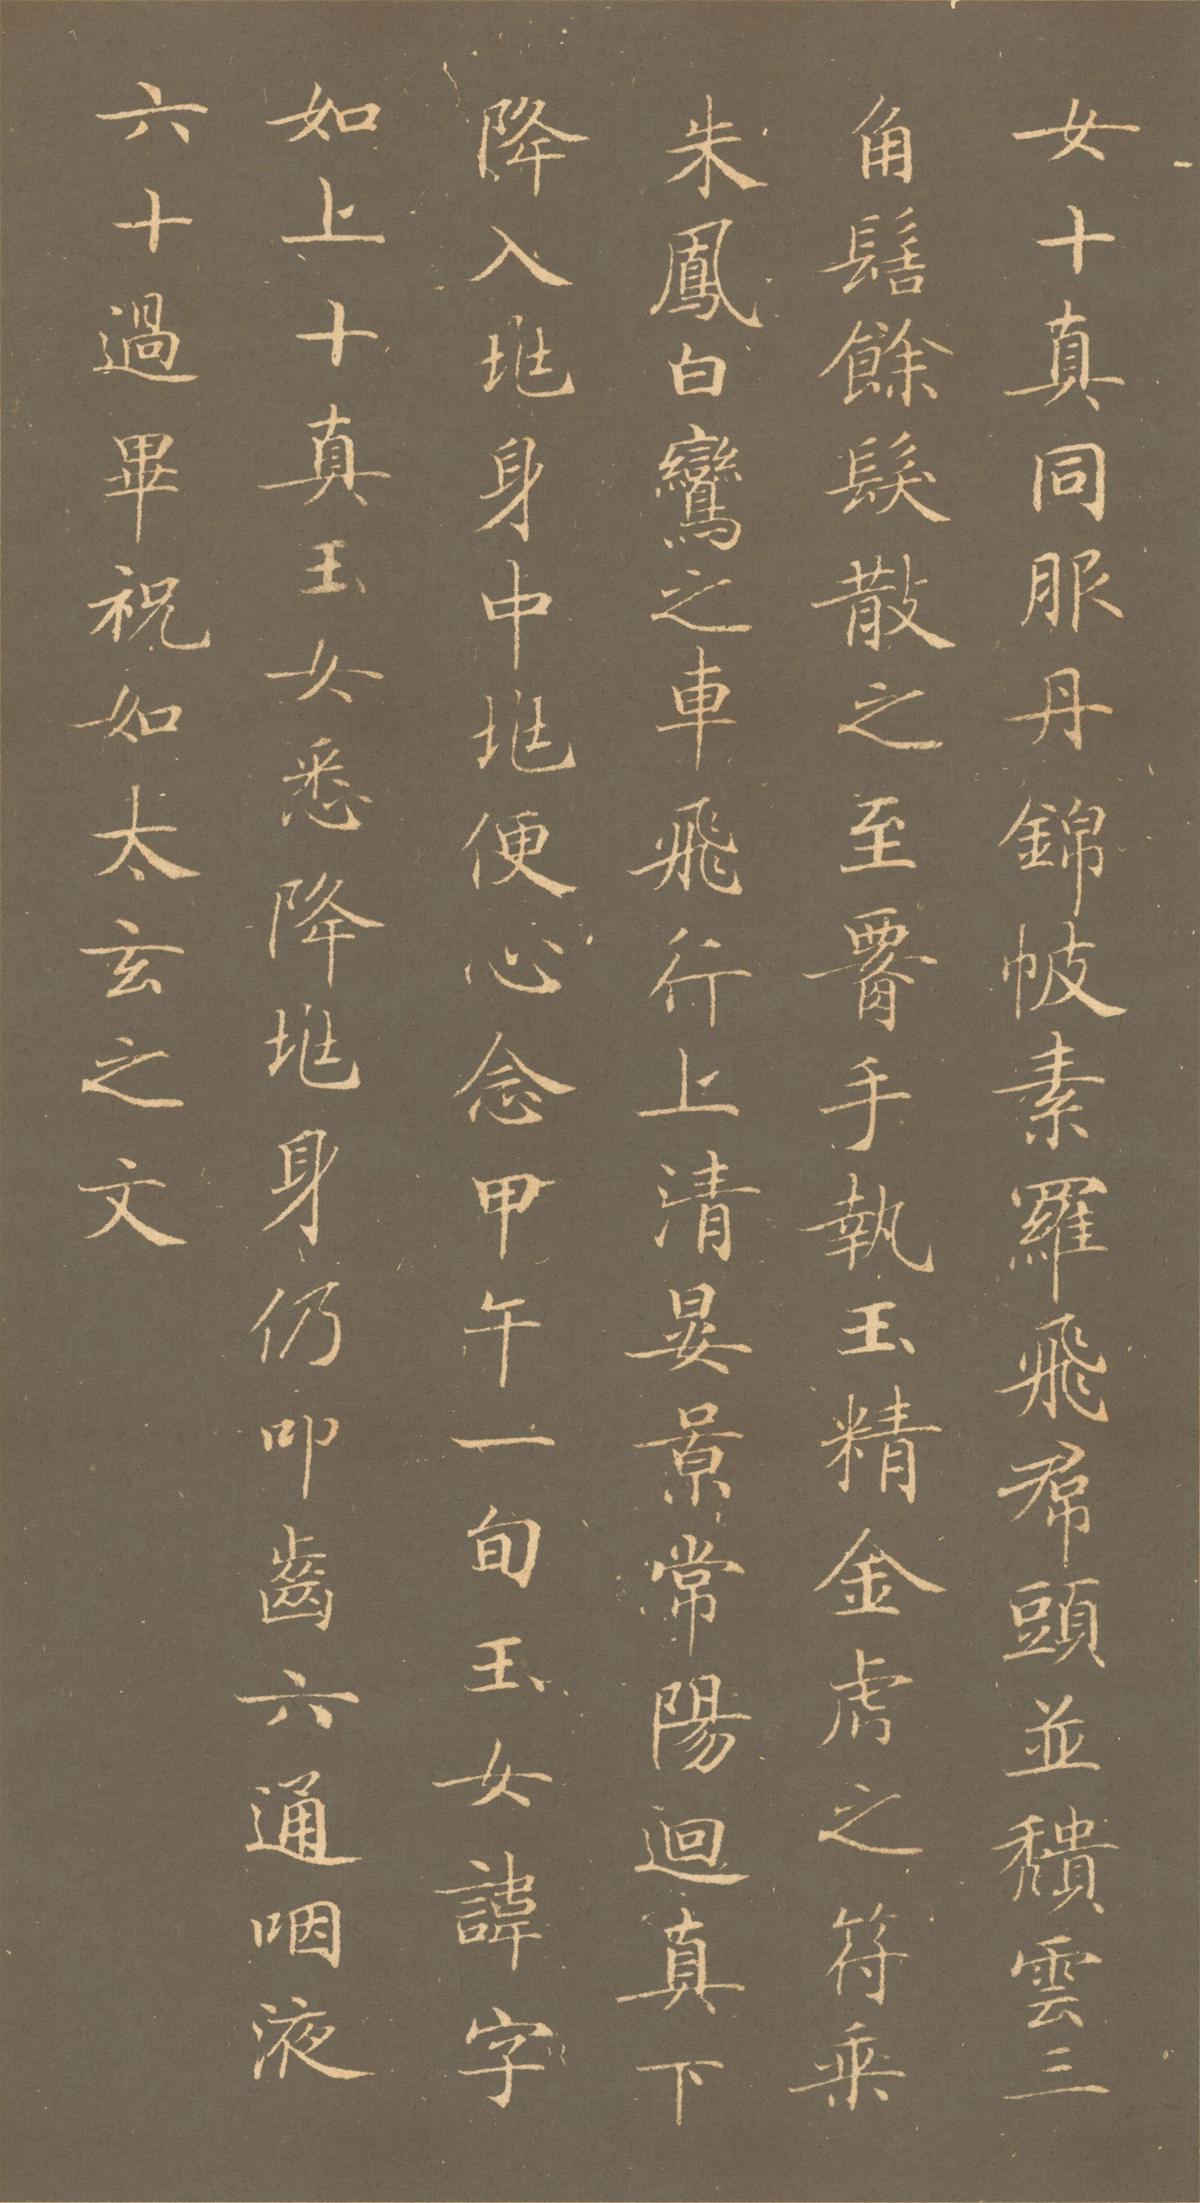 女十真同服丹錦帔素羅飛帬頭並頽雲三
角髻餘髮散之至腰手執玉精金虎之符乘
朱鳳白鸞之車飛行上清晏景常陽迴真下
降入兆身中兆便心念甲午一旬玉女諱字
如上十真玉女悉降兆身仍叩齒六通咽液
六十過畢祝如太玄之文